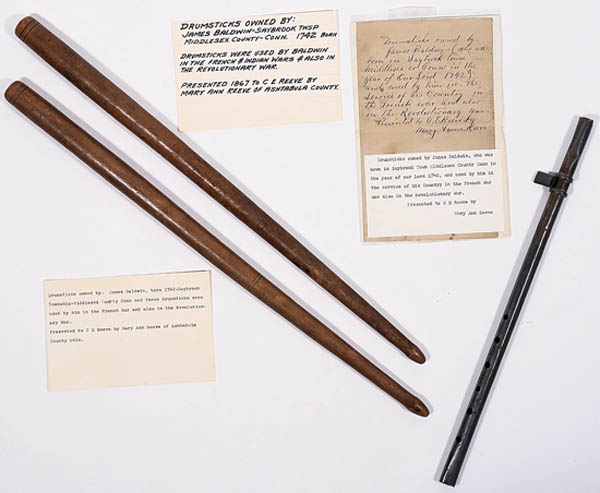 DRUMSTICKS OWNED BY:
JAMES BALDWIN-SAYBROOK TNSP
MIDDLESEX COUNTY-CONN. 1742 BORN
DRUMSTICKS WERE USED BY BALDWIN
IN THE FRENCH & INDIAN WARS & ALSO IN
THE REVOLUTIONARY WAR.
PRESENTED 1867 TO C E REEVE BY
MARY ANN REEVE OF ASHTABULA COUNTY.
Drumsticks owned by
James Baldwin, who was
born in Saybrook Town
Middlesex Co Conn in the
year of Our Lord 1742
and used by him in the
service of his Country in
the French war and also
in the Revolutionary War.
Presented to C. E. Reeve by
Mary Ann Reeve
Drumsticks owned by James Baldwin, who was
born in Saybrook Town Middlesex County Conn in
the year of our Lord 1742, and used by him in the
service of his Country in the French War
and also in the Revolutionary War.
Presented to C E Reeve by
Mary Ann Reeve
Drumsticks owned by: James Baldwin, born 1742-Saybrook
Township-Middlesex County Conn and these drumsticks were
used by him in the French War and also in the Revolution-
ary War.
Presented to C E Reeve by Mary Ann Reeve of Ashtabula
County Ohio.